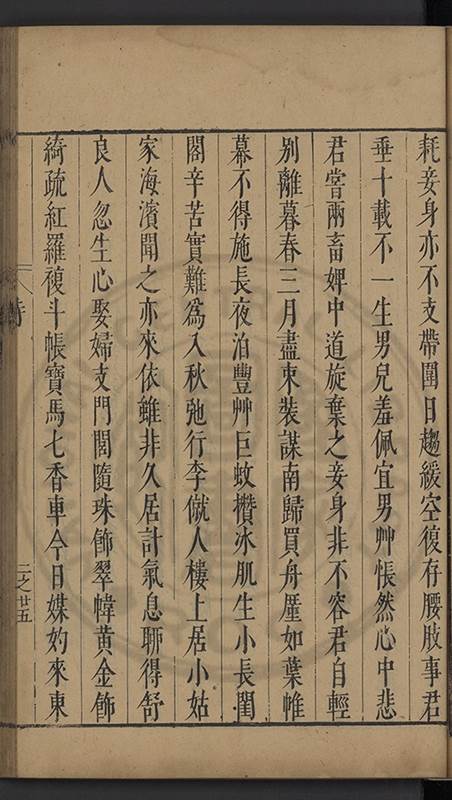 耗妾身亦不支帶圍日趨緩空復存腰肢事君
垂十載不一生男兒羞佩宜男艸悵然心中悲
君嘗兩畜婢中道旋棄之妾身非不容君自輕
別離暮春三月盡束裝謀南歸買舟厪如葉帷
幕不得施長夜泊豐艸巨蚊攢冰肌生小長閨
閣辛苦實難爲入秋弛行李僦人樓上居小姑
家海濱聞之亦來依雖非久居計氣息聊得舒
良人忽生心娶婦支門閭隨珠飾翠幃黃金飾
綺疏紅羅複斗帳寶馬七香車今日媒妁來東
詩
二之廿五